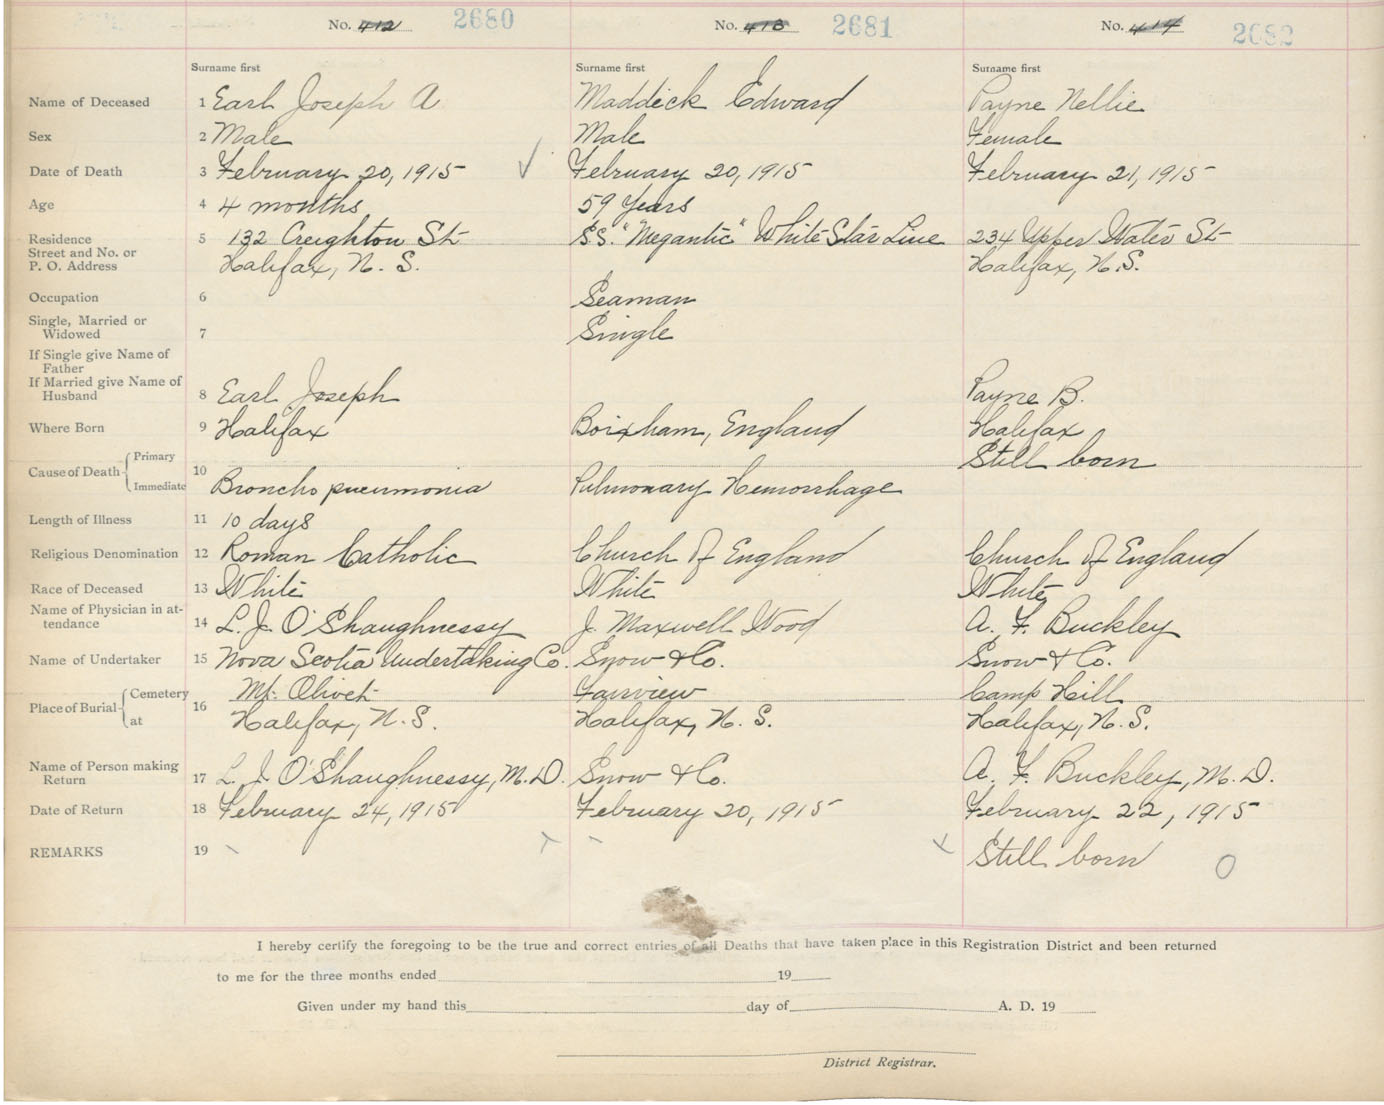 No. 412 2680 No. 413 2681 No. 414 2682
Surname first Surname first Surname first
Name of Deceased 1 Earl Joseph A Maddick Edward Payne Nellie
Sex 2 Male Male Female
Date of Death 3 February 20, 1915 February 20, 1915 February 21, 1915
Age 4 4 months 59 Years
Residence 5 132 Creighton St S.S. "Megantic" White Star Line 234 Upper Water St
Street and No. or
P. O. Address Halifax, N. S. Halifax, N.S.
Occupation 6 Seaman
Single, Married or
Widowed 7 Single
If Single give Name of
Father
If Married give Name of
Husband 8 Earl Joseph Payne B.
Where Born 9 Halifax Boixham, England Halifax
Primary Still born
Cause of Death 10
Immediate Broncho pneumonia Pulmonary Hemorrhage
Length of Illness 11 10 days
Religious Denomination 12 Roman Catholic Church of England Church of England
Race of Deceased 13 White White White
Name of Physician in at-
tendance 14 L. J. O'Shaughnessy J. Maxwell Wood A. F. Buckley
Name of Undertaker 15 Nova Scotia Undertaking Co. Snow & Co. Snow & Co.
Cemetery Mt. Olivet Fairview Camp Hill
Place of Burial 16
at Halifax, N.S. Halifax, N. S. Halifax, N.S.
Name of Person making
Return 17 L. J. O'Shaughnessy, M.D. Snow & Co. A. F. Buckley, M.D.
Date of Return 18 February 24, 1915 February 20, 1915 February 22, 1915
REMARKS 19 Still born
I hereby certify the foregoing to be the true and correct entries of all Deaths that have taken place in this Registration District and been returned
to me for the three months ended 19
Given under my hand this day of A. D. 19
District Registrar.